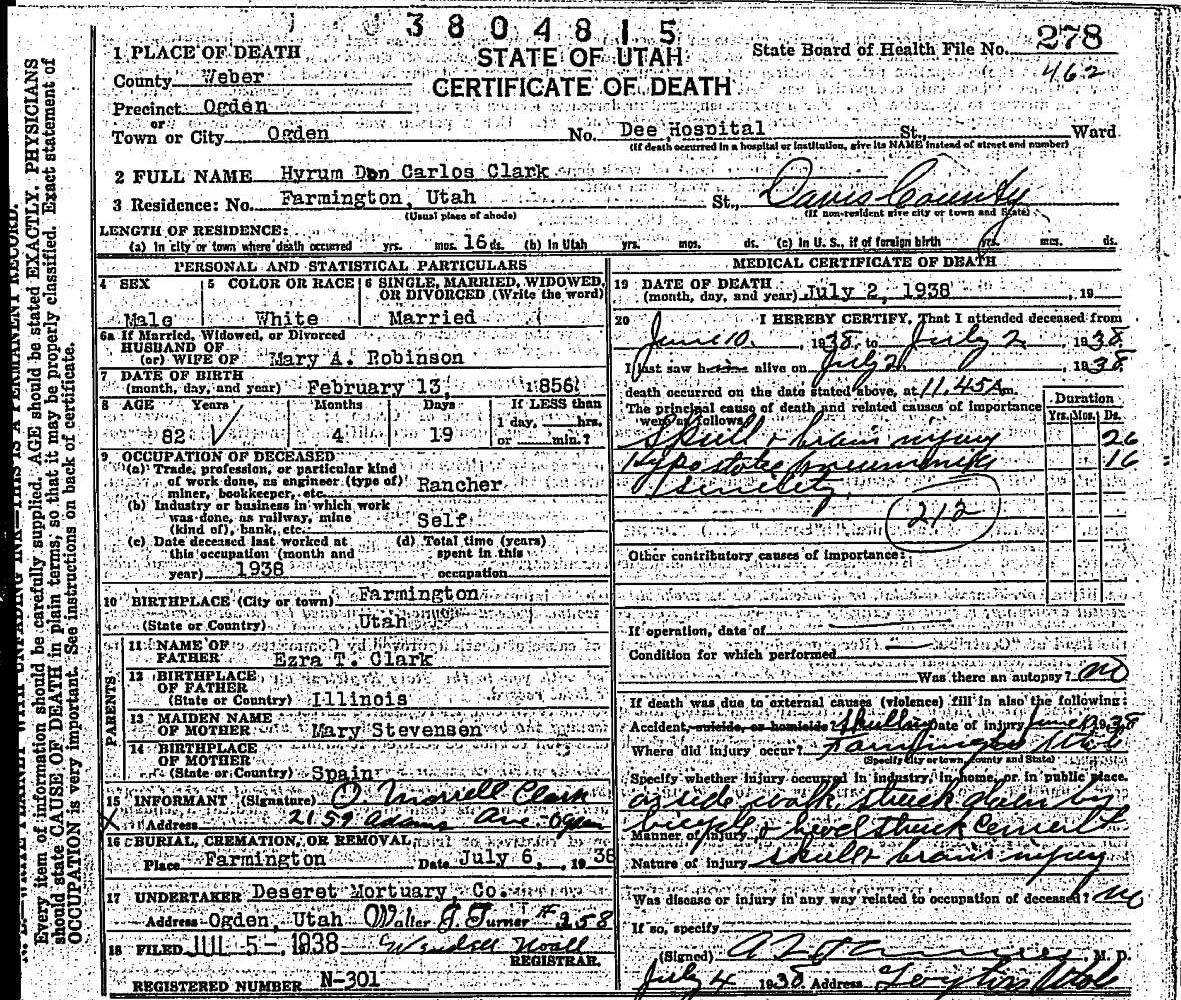 3 8 0 4 8 1 5
STATE OF UTAH
CERTIFICATE OF DEATH
State Board of Health File No. 278
462
1 PLACE OF DEATH
County Weber
Precinct Ogden
or
Town or City Ogden No. Dee Hospital St., Ward
(If death occurred in a hospital or institution, give its NAME instead of street and number)
2 FULL NAME Hyrum Don Carlos Clark
3 Residence: No. Farmington, Utah St., Davis County
(Usual place of abode) (If non-resident give city or town and State)
LENGTH OF RESIDENCE:
(a) In city or town where death occurred yrs. mos. 16 ds. (b) In Utah yrs. mos. ds. (c) In U. S., if of foreign birth yrs. mos. ds.
PERSONAL AND STATISTICAL PARTICULARS
4 SEX 5 COLOR OR RACE 6 SINGLE, MARRIED, WIDOWED, OR DIVORCED (Write the word)
Male White Married
6a If Married, Widowed, or Divorced
HUSBAND OF
(or) WIFE OF Mary A. Robinson
7 DATE OF BIRTH
(month, day, and year) February 13, 1856
8 AGE Years Months Days If LESS than
1 day, hrs.
82 4 19 or min.?
9 OCCUPATION OF DECEASED
(a) Trade, profession, or particular kind
of work done, as engineer (type of)
miner, bookkeeper, etc. Rancher
(b) Industry or business in which work
was done, as railway, mine
(kind of), bank, etc. Self
(c) Date deceased last worked at (d) Total time (years)
this occupation (month and spent in this
year) 1938 occupation
10 BIRTHPLACE (City or town) Farmington
(State or Country) Utah
PARENTS
11 NAME OF
FATHER Ezra T. Clark
12 BIRTHPLACE
OF FATHER
(State or Country) Illinois
13 MAIDEN NAME
OF MOTHER Mary Stevensen
14 BIRTHPLACE
OF MOTHER
(State or Country) Spain
15 INFORMANT (Signature) O Morrell Clark
X Address 2159 Adams Ave - Ogden
16 BURIAL, CREMATION, OR REMOVAL,
Place Farmington Date July 6, 1938
17 UNDERTAKER Deseret Mortuary Co.
Address Ogden, Utah Walter J. Turner #258
18 FILED JUL 5 - 1938 Wendell Noall
REGISTRAR.
REGISTERED NUMBER N-301
MEDICAL CERTIFICATE OF DEATH
19 DATE OF DEATH
(month, day, and year) July 2, 1938 , 19
20 I HEREBY CERTIFY, That I attended deceased from
June 10, 1938, to July 2, 1938.
I last saw h alive on July 2, 1938
death occurred on the date stated above, at 11.45 A m.
The principal cause of death and related causes of importance
were as follows: Duration
Yrs. Mos. Ds.
Skull & brain injury 26
Hypostatic pneumonia 16
Senility
212
Other contributory causes of importance:
If operation, date of
Condition for which performed
Was there an autopsy? no
If death was due to external causes (violence) fill in also the following:
Accident, suicide or homicide Date of injury June 1938
Where did injury occur? Farmington Utah
(Specify city or town, county and State)
Specify whether injury occurred in industry, in home, or in public place.
on side walk struck down by
Manner of injury bicycle & head struck cement
Nature of injury skull & brain injury
Was disease or injury in any way related to occupation of deceased? no
If so, specify
(Signed) M. D.
July 4 1938 Address Layton Utah
Every item of information should be carefully supplied. AGE should be stated EXACTLY. PHYSICIANS
should state CAUSE OF DEATH in plain terms, so that it may be properly classified. Exact statement of
OCCUPATION is very important. See instructions on back of certificate.